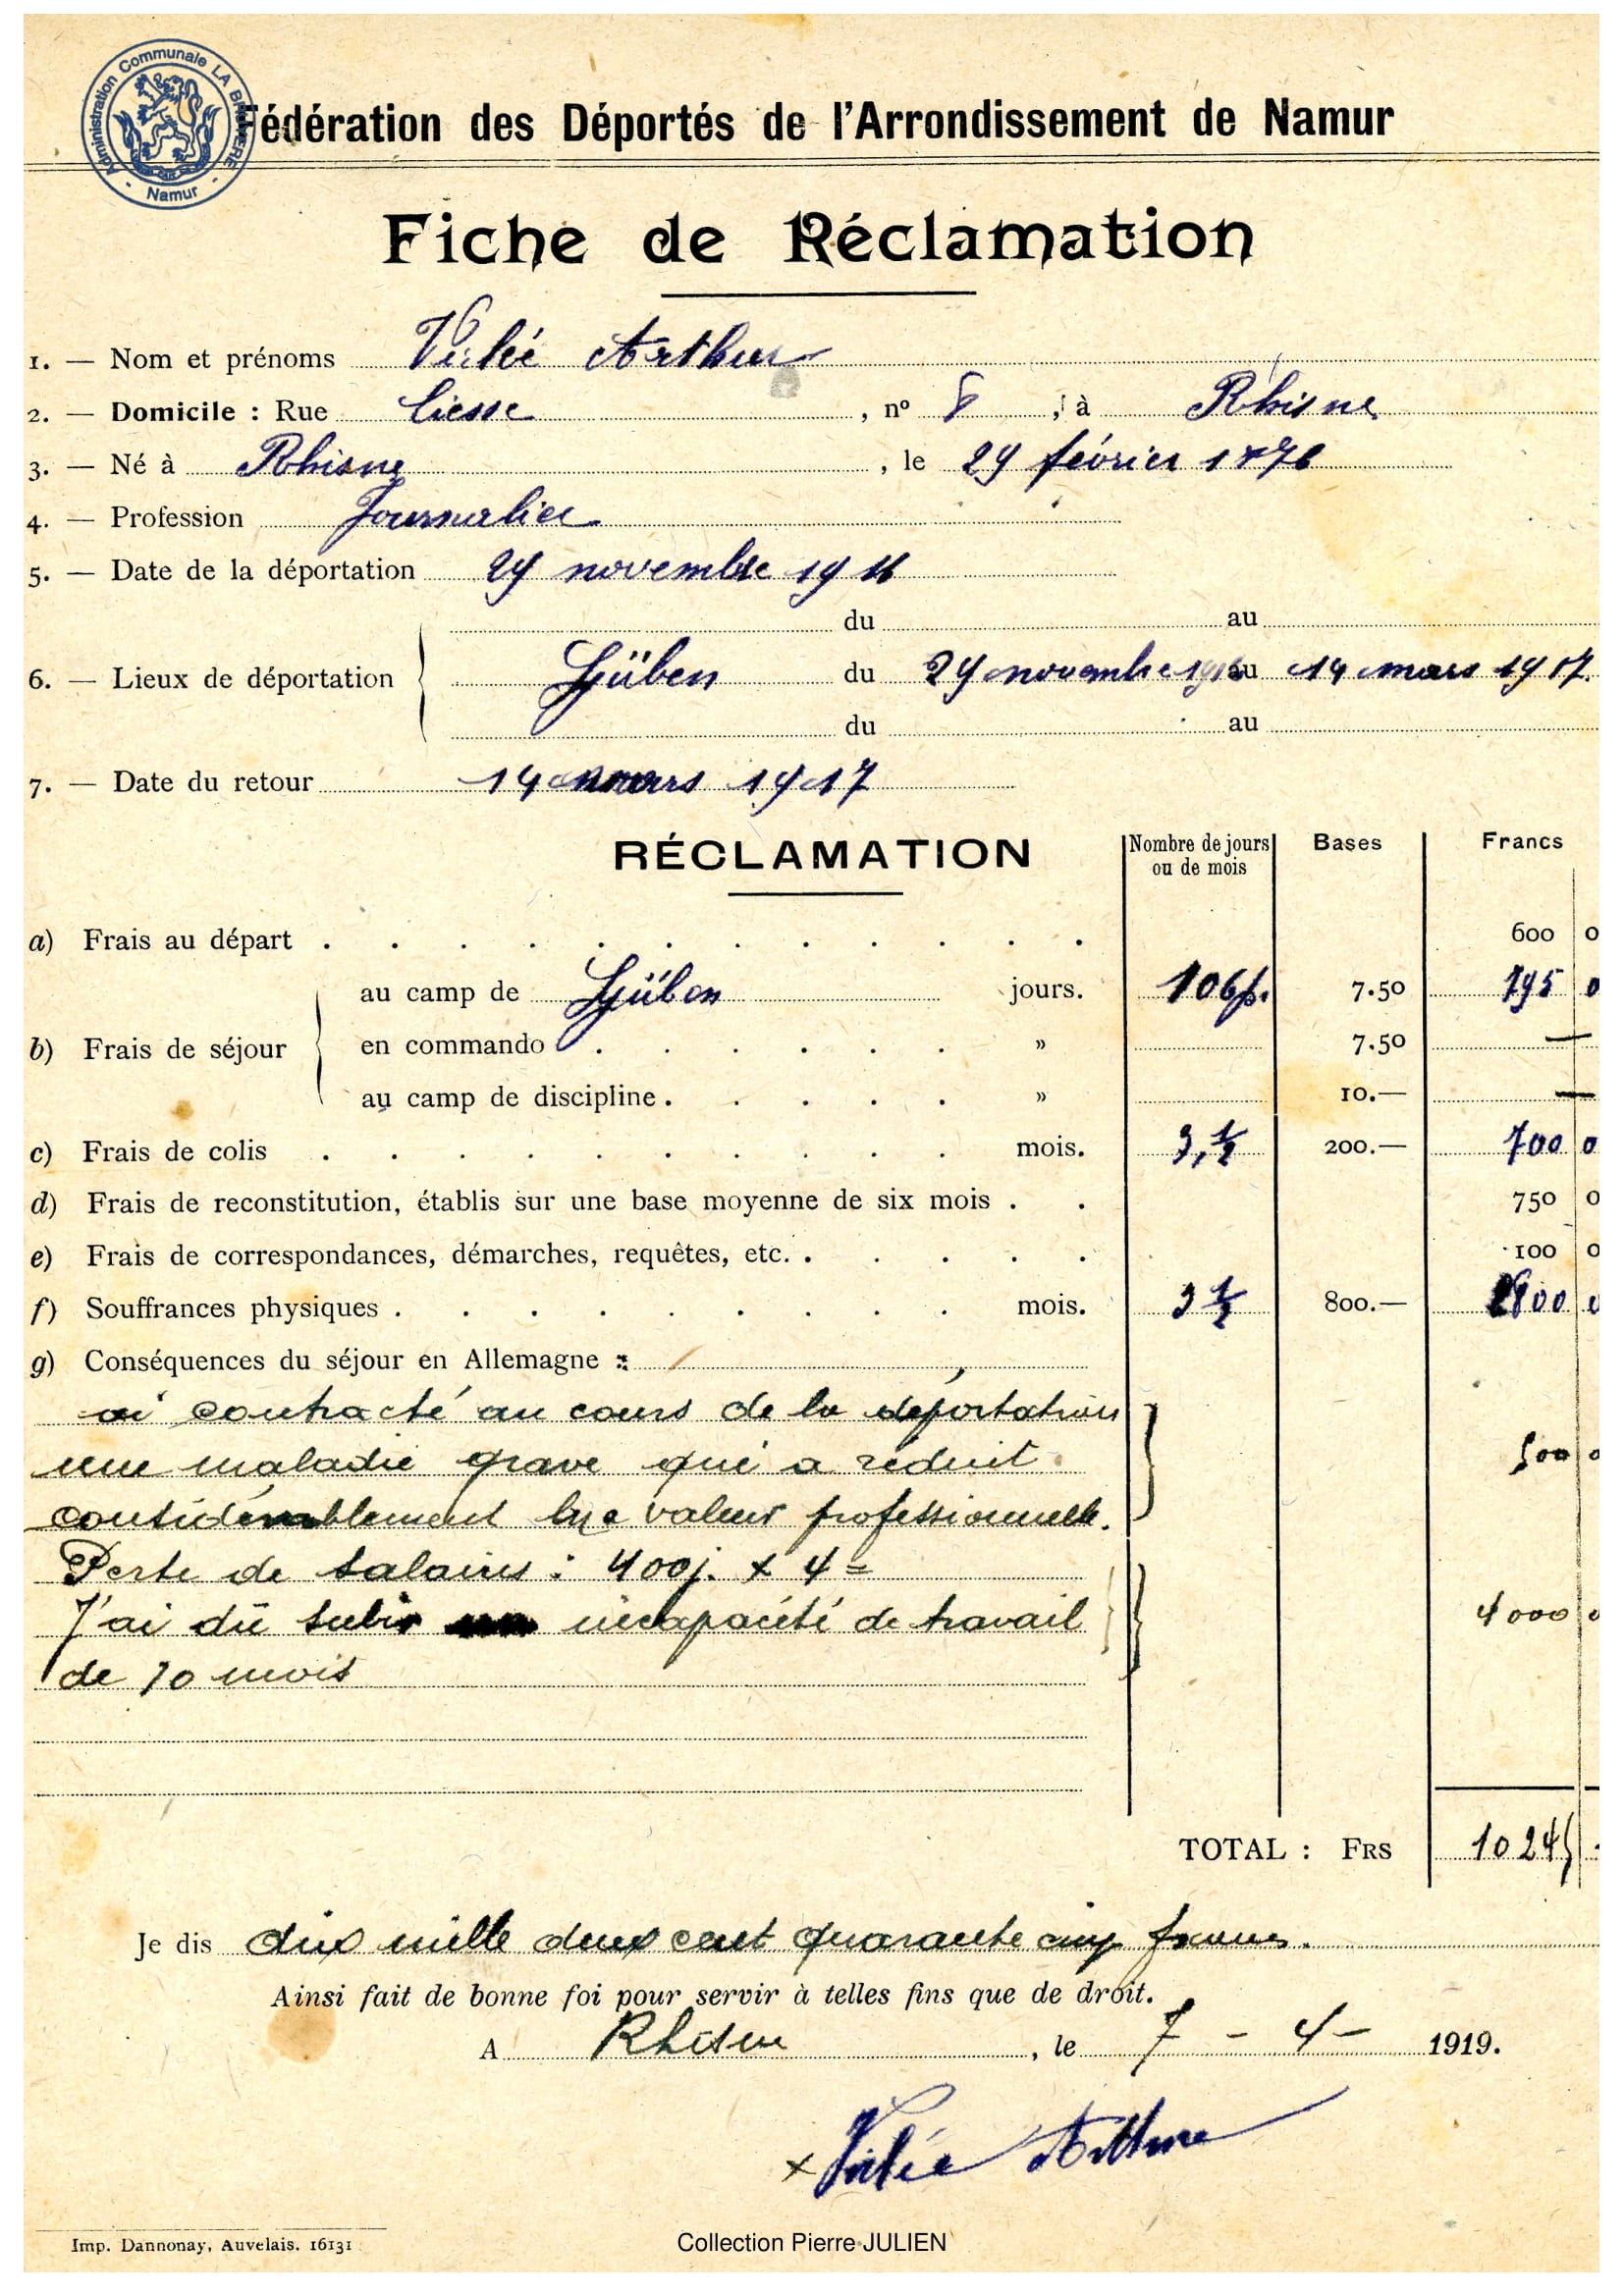 Administration Communale LA BRUYERE - Namur -
Fédération des Déportés de l'Arrondissement de Namur
Fiche de Réclamation
1. — Nom et prénoms Arthur
2. — Domicile : Rue Liesse , nº 8 , à Rhisne
3. — Né à Rhisne , le 29 février 1876
4. — Profession Journalier
5. — Date de la déportation 29 novembre 1916
du au
6. — Lieux de déportation Güben du 29 novembre 1916 au 14 mars 1917.
du au
7. — Date du retour 14 mars 1917
RÉCLAMATION Nombre de jours ou de mois Bases Francs
a) Frais au départ 600 0
b) Frais de séjour au camp de Güben jours. 106 j. 7.50 795 0
en commando » 7.50 —
au camp de discipline . » 10.— —
c) Frais de colis mois. 3,½ 200.— 700 0
d) Frais de reconstitution, établis sur une base moyenne de six mois . 750 0
e) Frais de correspondances, démarches, requêtes, etc. 100 0
f) Souffrances physiques . mois. 3 ½ 800.— 2800 0
g) Conséquences du séjour en Allemagne :
ai contracté au cours de la déportation
une maladie grave qui a réduit 500 0
considérablement valeur professionnelle.
Perte de salaires : 400 j. x 4 =
J'ai dû subir incapacité de travail 4000 0
de 10 mois
TOTAL : FRS 10245
Je dis dix mille deux cent quarante cinq francs.
Ainsi fait de bonne foi pour servir à telles fins que de droit.
A Rhisne , le 7 - 4 - 1919.
x Arthur
Imp. Dannonay, Auvelais. 16131
Collection Pierre JULIEN